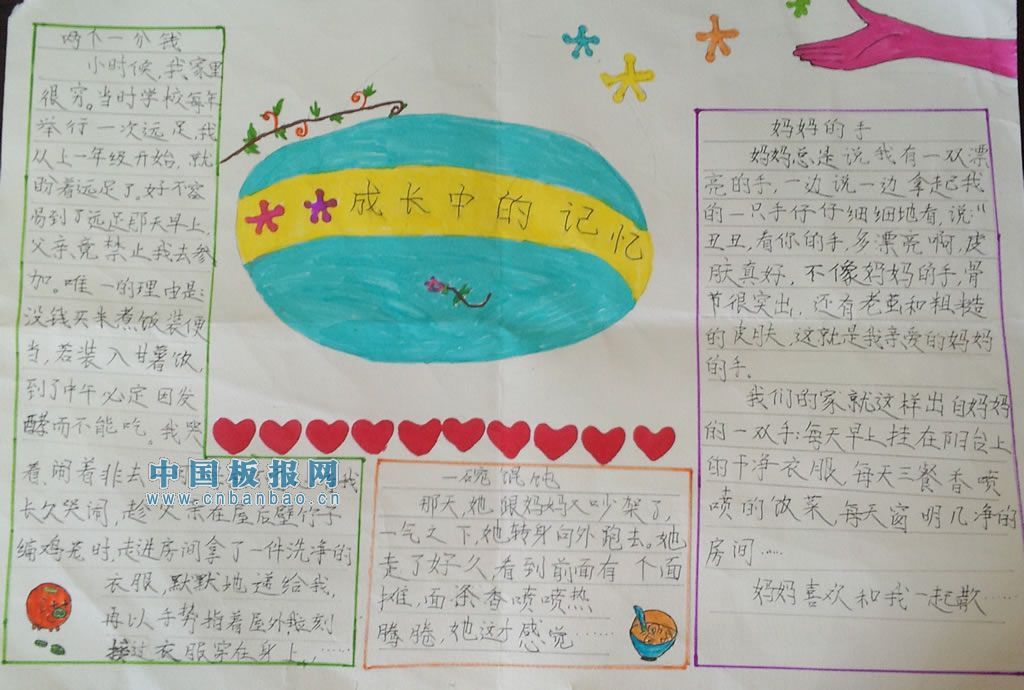 两个一分钱
小时候,我家里
很穷。当时学校每年
举行一次远足,我
从上一年级开始,就
盼着远足了。好不容
易到了远足那天早上,
父亲竟禁止我去参
加。唯一的理由是:
没钱买米煮饭装便
当,若装入甘薯饭,
到了中午必定因发
酵而不能吃。我哭
着,闹着非去 我
长久哭闹,趁父亲在屋后劈竹子
编鸡笼时,走进房间拿了一件洗净的
衣服,默默地递给我,
再以手势指着屋外,我立刻
接过衣服穿在身上,……
成长中的记忆
中国板报网
www.cnbanbao.cn
一碗馄饨
那天,她跟妈妈又吵架了,
一气之下,她转身向外跑去。她
走了好久,看到前面有个面
摊,面条香喷喷热
腾腾,她这才感觉……
妈妈的手
妈妈总是说我有一双漂
亮的手,一边说一边拿起我
的一只手仔仔细细地看,说:"
丑丑,看你的手,多漂亮啊,皮
肤真好,不像妈妈的手,骨
节很突出,还有老茧和粗糙
的皮肤,这就是我亲爱的妈妈
的手。
我们的家就这样出自妈妈
的一双手:每天早上挂在阳台上
的干净衣服,每天三餐香喷
喷的饭菜,每天窗明几净的
房间……
妈妈喜欢和我一起散……